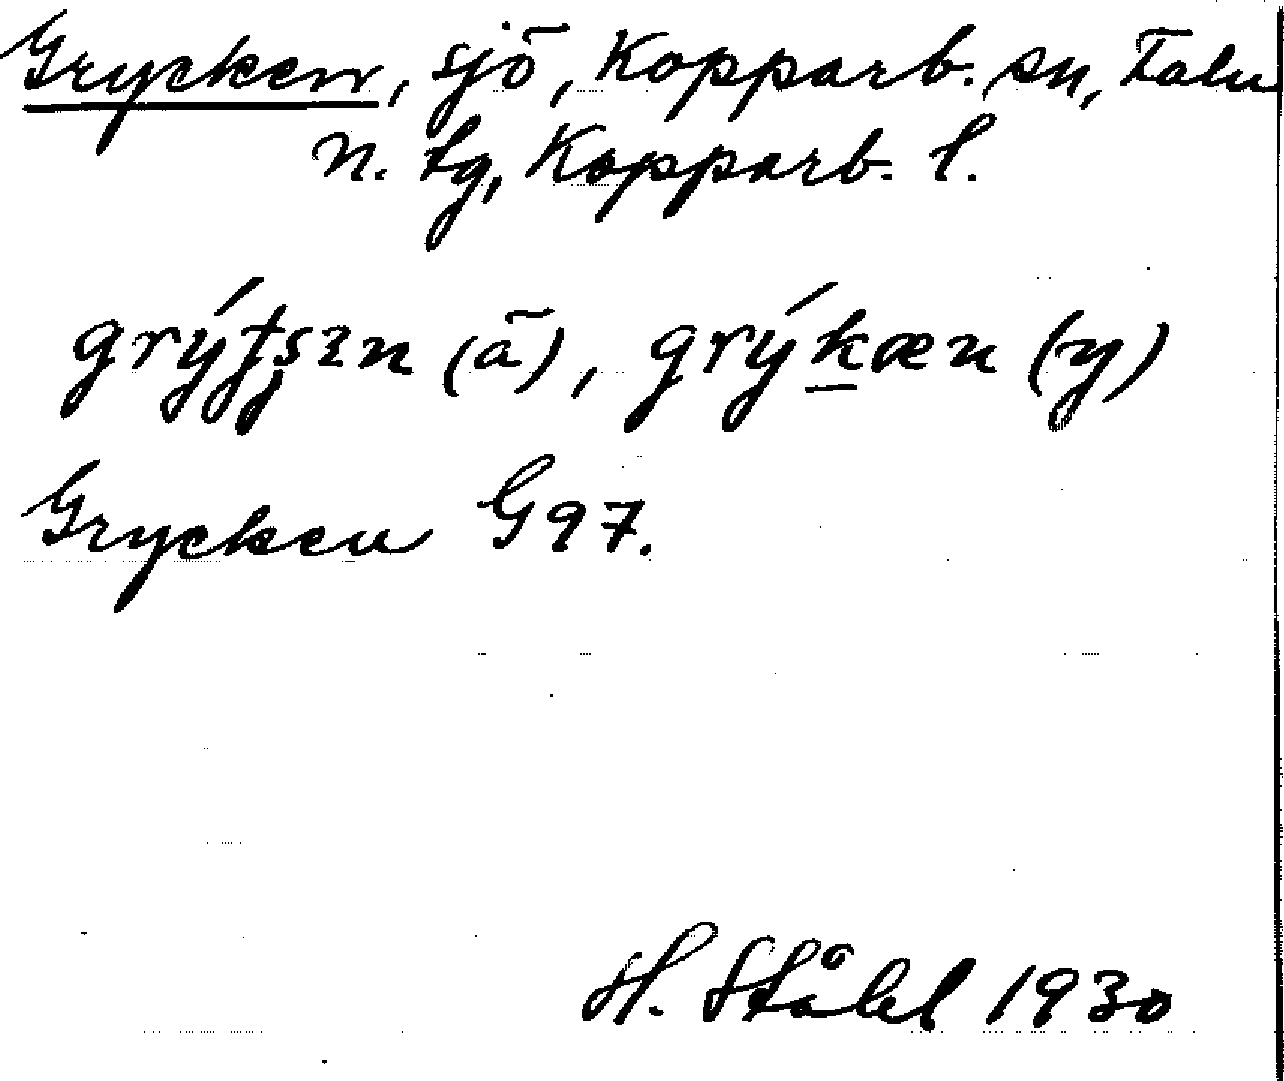 Grycken, sjö, Kopparb. sn, Falu
N. tg, Kopparb. l.
grýtʂɪn (ä), grýkæn (y)
Grycken G97.
H. Ståhl 1930